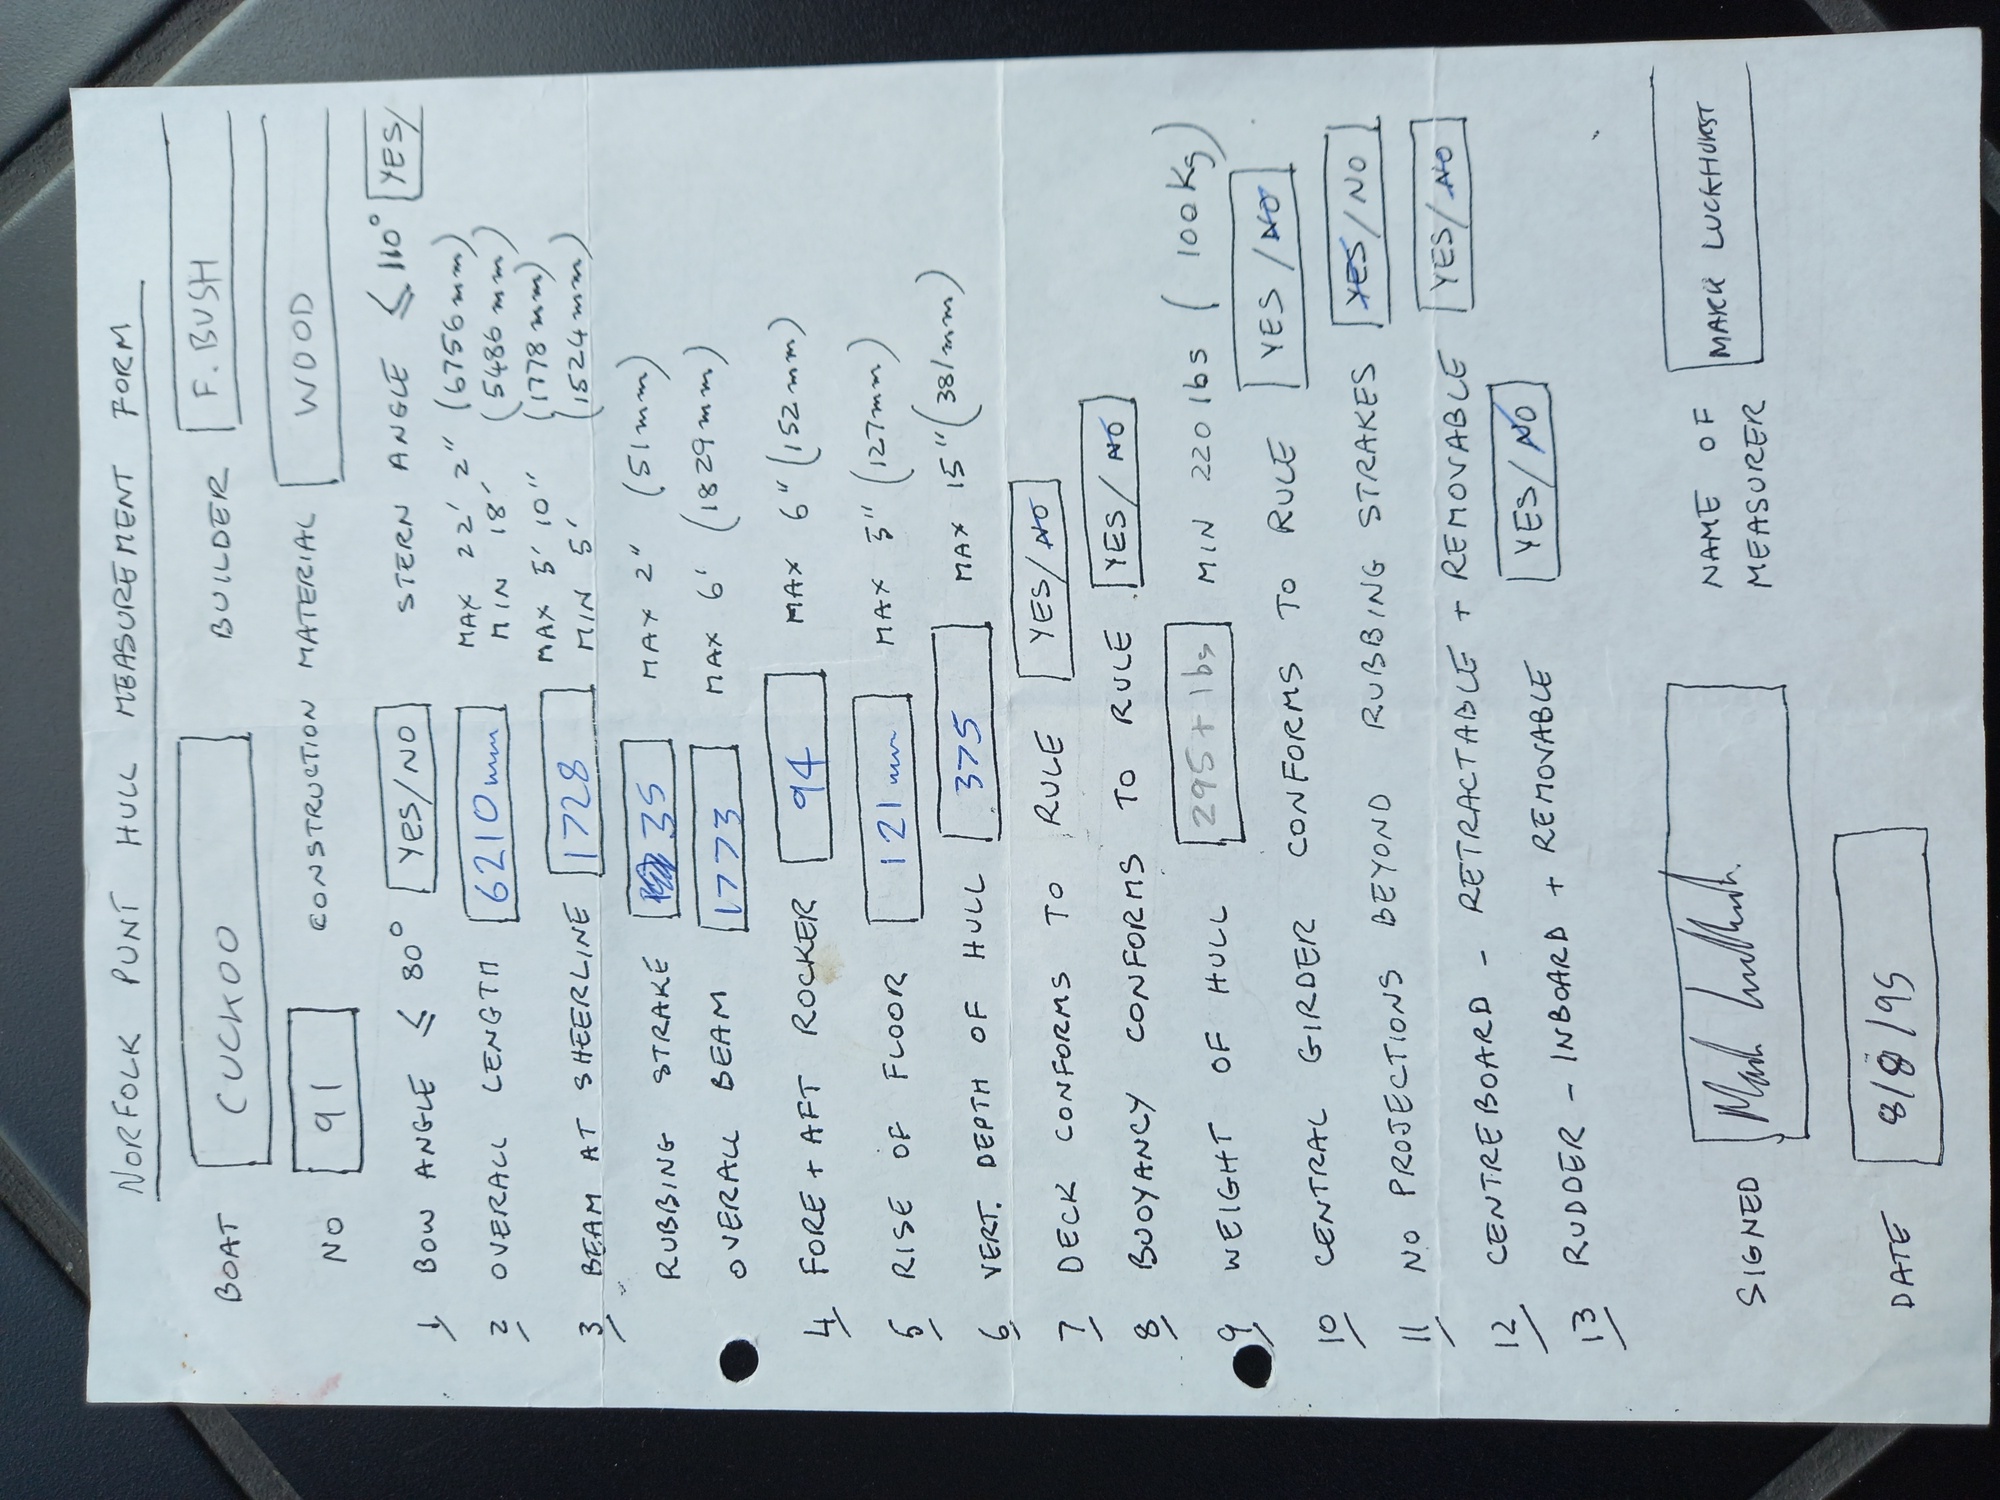 NORFOLK PUNT HULL MEASUREMENT FORM
BOAT CUCKOO BUILDER F. BUSH
NO 91 CONSTRUCTION MATERIAL WOOD
1/ BOW ANGLE ≤ 80° YES/NO STERN ANGLE ≤ 110° YES/
2/ OVERALL LENGTH 6210mm MAX 22' 2" (6756mm)
MIN 18' (5486mm)
3/ BEAM AT SHEERLINE 1728 MAX 5' 10" (1778mm)
MIN 5' (1524mm)
RUBBING STRAKE 35 MAX 2" (51mm)
OVERALL BEAM 1773 MAX 6' (1829mm)
4/ FORE + AFT ROCKER 94 MAX 6" (152mm)
5/ RISE OF FLOOR 121mm MAX 5" (127mm)
6/ VERT. DEPTH OF HULL 375 MAX 15" (381mm)
7/ DECK CONFORMS TO RULE YES/NO
8/ BUOYANCY CONFORMS TO RULE YES/NO
9/ WEIGHT OF HULL 295+lbs MIN 220 lbs (100Kg)
10/ CENTRAL GIRDER CONFORMS TO RULE YES/NO
11/ NO PROJECTIONS BEYOND RUBBING STRAKES YES/NO
12/ CENTREBOARD - RETRACTABLE + REMOVABLE YES/NO
13/ RUDDER - INBOARD + REMOVABLE YES/NO
SIGNED Mark Luckhurst NAME OF MARK LUCKHURST
MEASURER
DATE 8/8/95